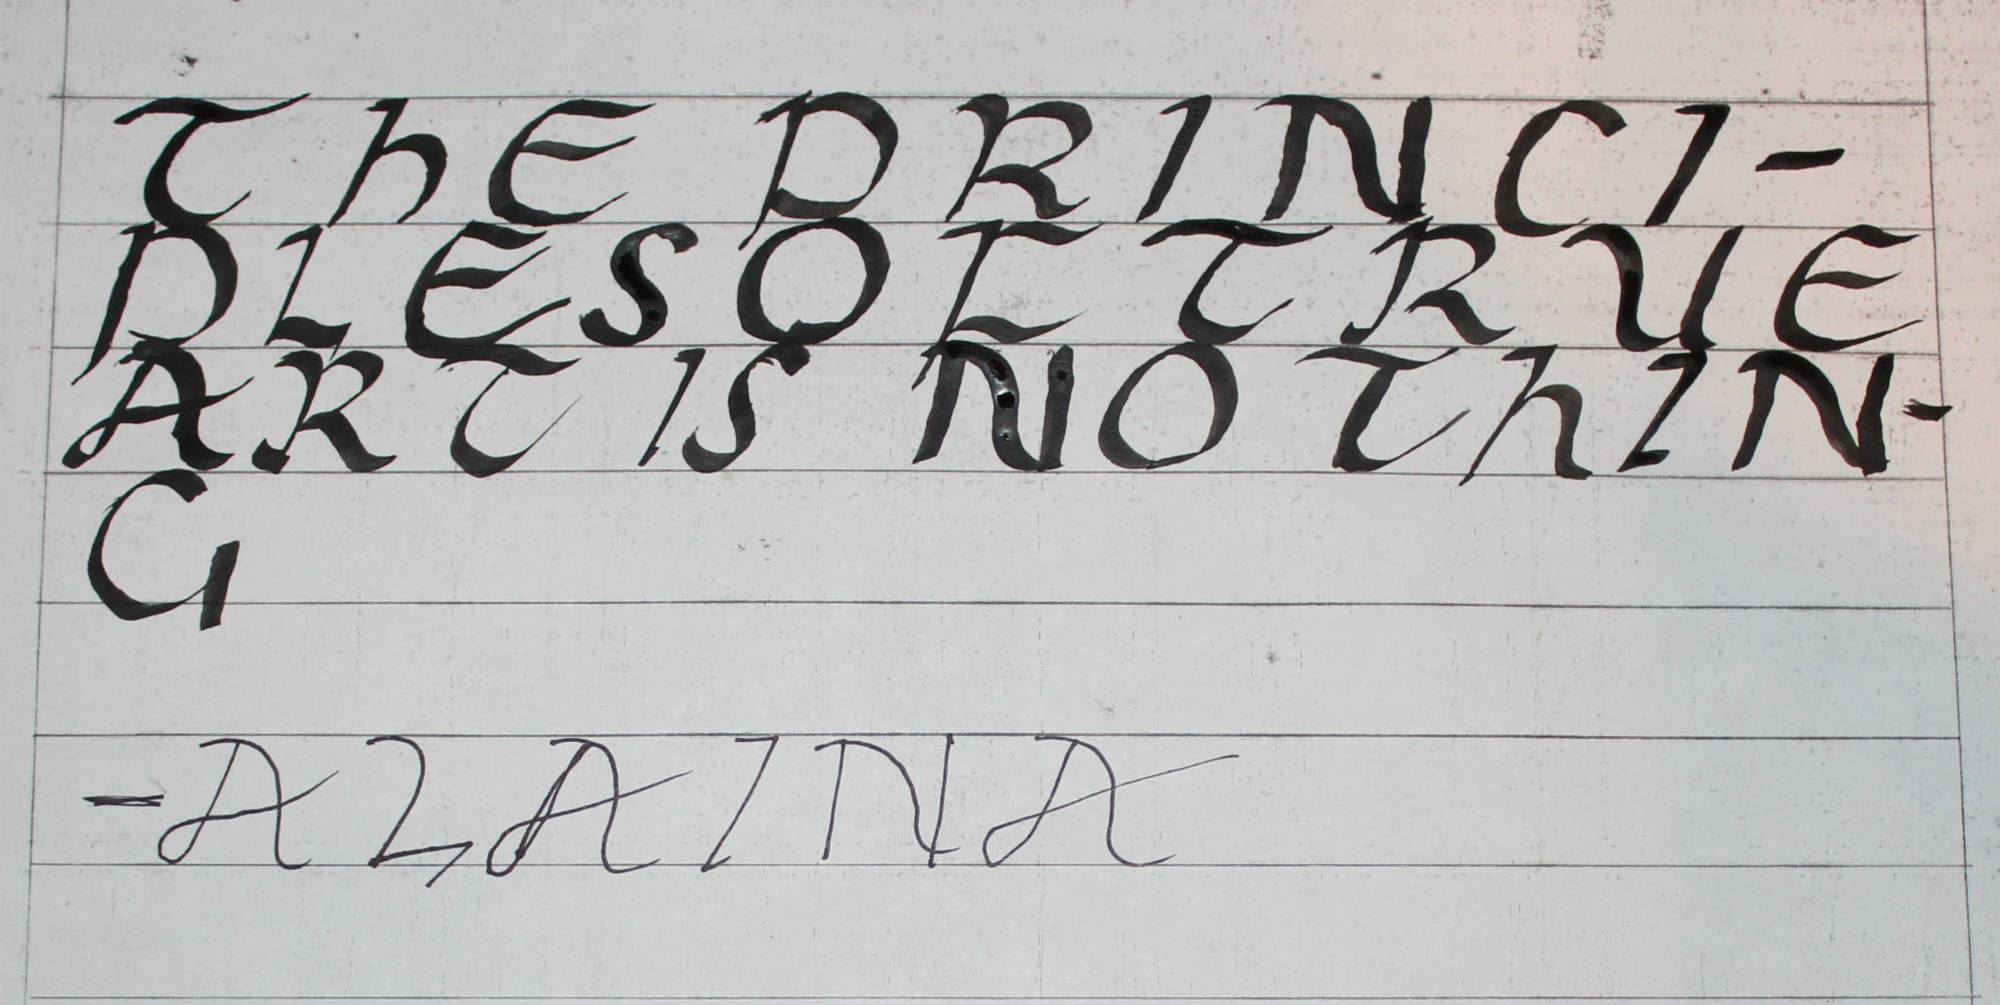 ThE PRINCI-
PLES OF TRUE
ART IS NOThIN-
G
-ALAINA